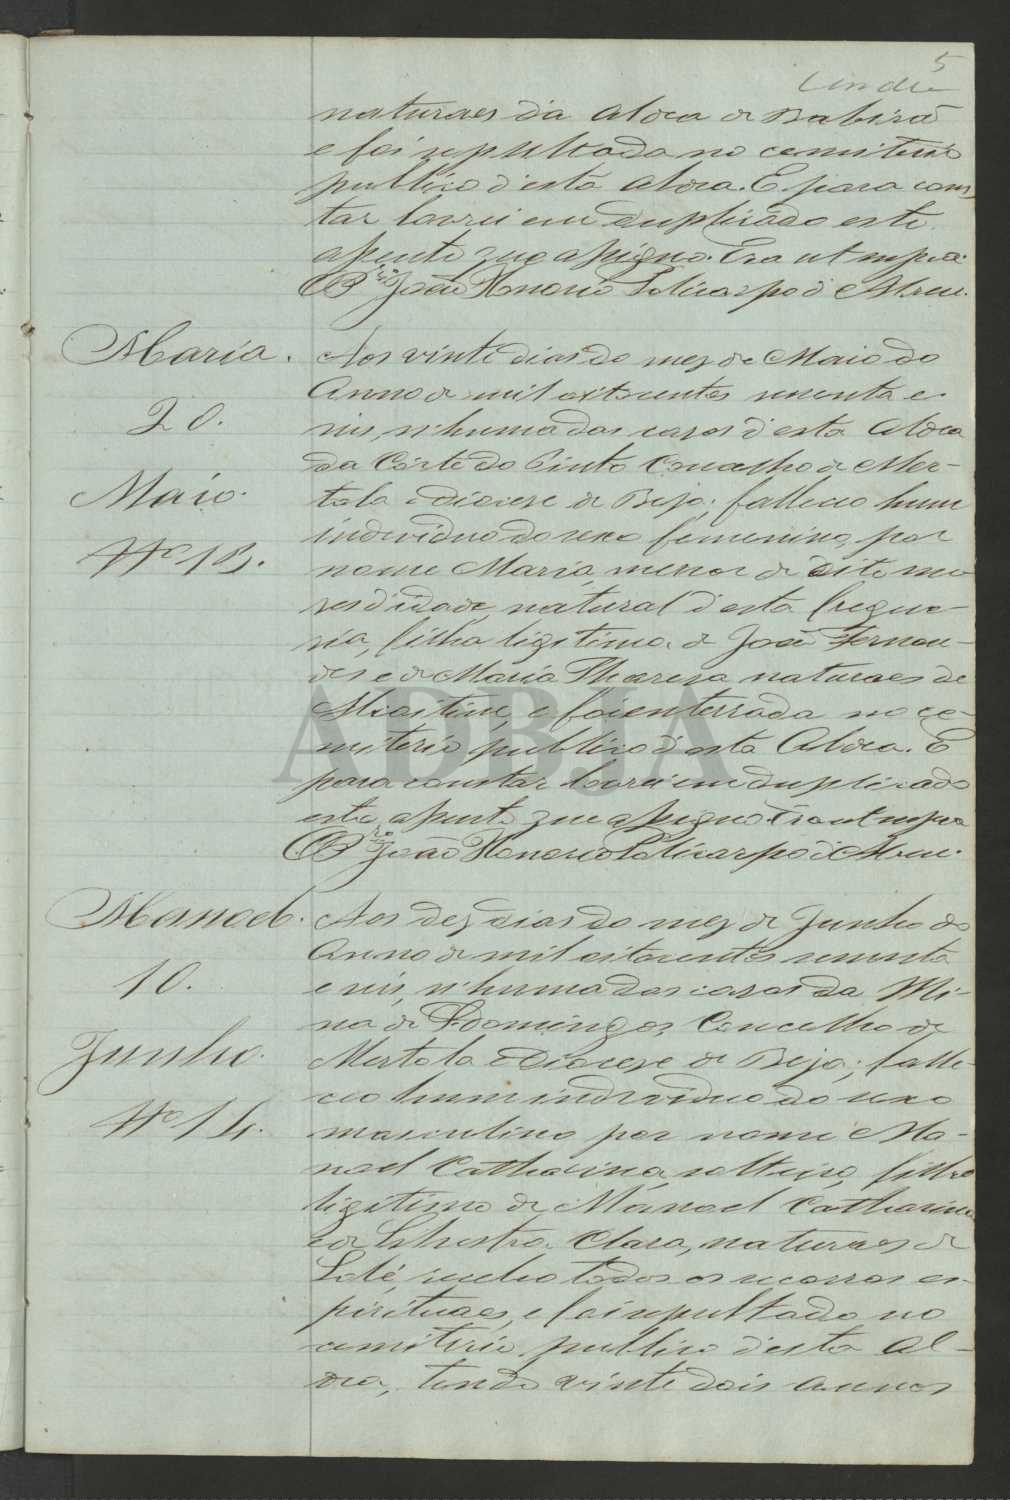 5
naturaes da Aldea de Babirão
e foi sepultada no cemiterio
publico d'esta Aldea. E para cons
tar lavrei em duplicado este
assento que assigno. Era ut supra
O Pr.º João Honorio Policarpo d'Abreu.
Maria.
20.
Maio.
Nº 13.
Aos vinte dias do mez de Maio do
Anno de mil oitocentos sessenta e
seis, n'huma das casas d'esta Aldea
da Côrte do Pinto Concelho de Mer-
tola e diocese de Beja; falleceo hum
individuo do sexo femenino, por
nome Maria, menor de oito me
ses d'idade, natural d'esta fregue-
sia, filha ligitima de João Fernan-
des e de Maria Thareza naturaes de
e foi enterrada no ce-
miterio publico d'esta Aldea. E
para constar lavrei em duplicado
este assento que assigno Era ut supra
O Pr.º João Honorio Policarpo d'Abreu.
Manoel.
10.
Junho.
Nº 14.
Aos dez dias do mez de Junho do
Anno de mil oitocentos sessenta
e seis, n'huma das casas da Mi-
na de S. Domingos, Concelho de
Mertola e Diocese de Beja; falle-
ceo hum individuo do sexo
masculino por nome Ma-
noel Catharina, solteiro, filho
ligitimo de Manoel Catharina
e de Clara, naturaes de
Lolé, recebeo todos os socorros es-
pirituaes, e foi sepultado no
cemiterio publico d'esta Al-
dea, tendo vinte dois annos
ADBJA